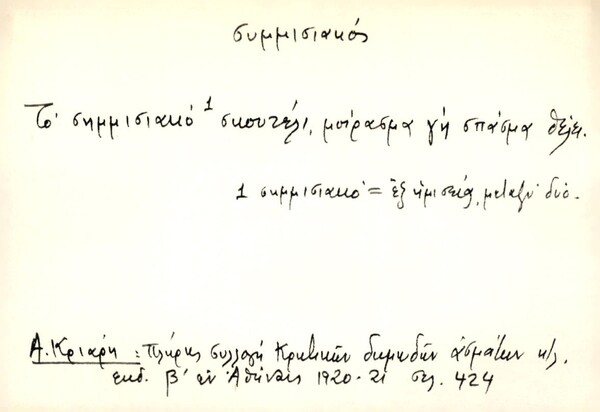 συμμισιακός
Το' σημμισιακό 1 σκουτέλι, μοίρασμα γή σπάσμα θέλει.
1 σημμισιακό = ἐξ ἡμισείας, μεταξύ δυό.
Α. Κριάρη: Πλήρης συλλογή Κρητικῶν δημωδῶν ἀσμάτων κτλ.
εκδ. β' εν Ἀθήναις 1920-21 σελ. 424